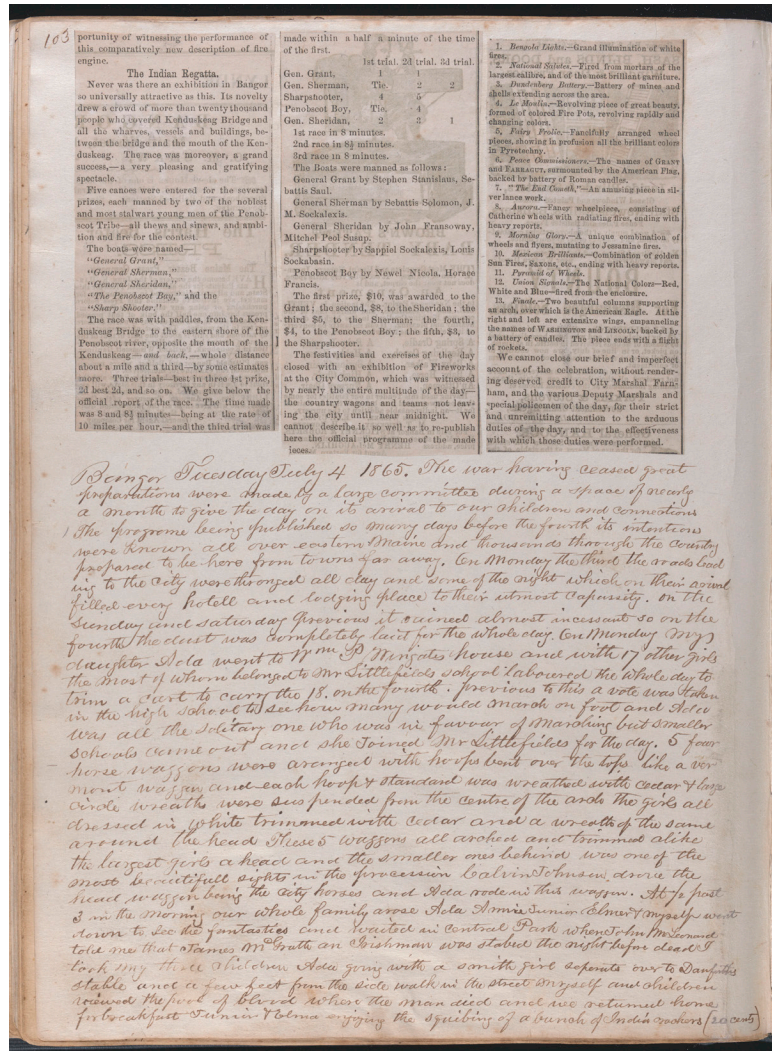 103
portunity of witnessing the performance of
this comparatively new description of fire
engine.
The Indian Regatta.
Never was there an exhibition in Bangor
so universally attractive as this. Its novelty
drew a crowd of more than twenty thousand
people who covered Kenduskeag Bridge and
all the wharves, vessels and buildings, be-
tween the bridge and the mouth of the Ken-
duskeag. The race was moreover, a grand
success,—a very pleasing and gratifying
spectacle.
Five canoes were entered for the several
prizes, each manned by two of the noblest
and most stalwart young men of the Penob-
scot Tribe—all thews and sinews, and ambi-
tion and fire for the contest.
The boats were named—
"General Grant,"
"General Sherman,"
"General Sheridan,"
"The Penobscot Boy," and the
"Sharp Shooter."
The race was with paddles, from the Ken-
duskeag Bridge to the eastern shore of the
Penobscot river, opposite the mouth of the
Kenduskeag—and back,—whole distance
about a mile and a third—by some estimates
more. Three trials—best in three 1st prize,
2d best 2d, and so on. We give below the
official report of the race. The time made
was 8 and 8½ minutes—being at the rate of
10 miles per hour,—and the third trial was
made within a half a minute of the time
of the first.
1st trial. 2d trial. 3d trial.
Gen. Grant, 1 1
Gen. Sherman, Tie. 2 2
Sharpshooter, 4 5
Penobscot Boy, Tie. 4
Gen. Sheridan, 2 3 1
1st race in 8 minutes.
2nd race in 8½ minutes.
3rd race in 8 minutes.
The Boats were manned as follows:
General Grant by Stephen Stanislaus, Se-
battis Saul.
General Sherman by Sebattis Solomon, J.
M. Sockalexis.
General Sheridan by John Fransoway,
Mitchel Peol Susup.
Sharpshooter by Sappiel Sockalexis, Louis
Sockabasin.
Penobscot Boy by Newel Nicola, Horace
Francis.
The first prize, $10, was awarded to the
Grant; the second, $8, to the Sheridan; the
third $5, to the Sherman; the fourth,
$4, to the Penobscot Boy; the fifth, $3, to
the Sharpshooter.
The festivities and exercises of the day
closed with an exhibition of Fireworks
at the City Common, which was witnessed
by nearly the entire multitude of the day—
the country wagons and teams not leav-
ing the city until near midnight. We
cannot describe it so well as to re-publish
here the official programme of the made
ieces.
1. Bengola Lights.—Grand illumination of white
fires.
2. National Salutes.—Fired from mortars of the
largest calibre, and of the most brilliant garniture.
3. Dandenberg Battery.—Battery of mines and
shells extending across the area.
4. Le Moulin.—Revolving piece of great beauty,
formed of colored Fire Pots, revolving rapidly and
changing colors.
5. Fairy Frolic.—Fancifully arranged wheel
pieces, showing in profusion all the brilliant colors
in Pyrotechny.
6. Peace Commissioners.—The names of GRANT
and FARRAGUT, surmounted by the American Flag,
backed by battery of Roman candles.
7. "The End Cometh,"—An amusing piece in sil-
ver lance work.
8. Aurora.—Fancy wheelpiece, consisting of
Catherine wheels with radiating fires, ending with
heavy reports.
9. Morning Glory.—A unique combination of
wheels and flyers, mutating to Jessamine fires.
10. Mexican Brilliants.—Combination of golden
Sun Fires, Saxons, etc., ending with heavy reports.
11. Pyramid of Wheels.
12. Union Signals.—The National Colors—Red,
White and Blue—fired from the enclosure.
13. Finale.—Two beautiful columns supporting
an arch, over which is the American Eagle. At the
right and left are extensive wings, empanneling
the names of WASHINGTON and LINCOLN, backed by
a battery of candles. The piece ends with a flight
of rockets.
We cannot close our brief and imperfect
account of the celebration, without render-
ing deserved credit to City Marshal Farn-
ham, and the various Deputy Marshals and
special policemen of the day, for their strict
and unremitting attention to the arduous
duties of the day, and to the effectiveness
with which those duties were performed.
Bangor Tuesday July 4 1865. The war having ceased great
preparations were made by a large committee during a space of nearly
a month to give the day on its arival to our children and connections
The programe being published so many days before the fourth its intentions
were known all over eastern Maine and thousands through the country
prepared to be here from towns far away. On Monday the third the roads lead
ing to the city were thronged all day and some of the night which on their arival
filled every hotell and lodging place to their utmost capassity. on the
Sunday and saturday previous it rained almost incessant so on the
fourth the dust was completely laid for the whole day. On Monday my
daughter Ada went to Wm P Wingates house and with 17 other girls
the most of whom belonged to Mr Littlefields school laboured the whole day to
trim a cart to carry the 18. on the fourth. previous to this a vote was taken
in the high school to see how many would march on foot and Ada
was all the solitary one who was in favour of marching but smaller
schools came out and she joined Mr Littlefields for the day. 5 four
horse waggons were aranged with hoops bent over the tops like a ver
mont waggon and each hoop & standard was wreathed with cedar & large
circle wreaths were suspended from the centre of the arch the girls all
dressed in white trimmed with cedar and a wreath of the same
around the head These 5 waggons all arched and trimmed alike
the largest girls ahead and the smaller ones behind was one of the
most beautifull sights in the procession Calvin Johnson drove the
head waggon being the city horses and Ada rode in this waggon. At ½ past
3 in the morning our whole family arose Ada Annie Junior Elmer & myself went
down to see the fantastics and waited in Central Park when John McDonand
told me that James McGrath an Irishman was stabed the night before dead I
took my three children Ada going with a smith girl seperate over to
stable and a few feet from the side walk in the street myself and children
viewed the pool of blood where the man died and we returned home
for breakfast Junior & Elma enjoying the squibing of a bunch of India crackers (20 cents)